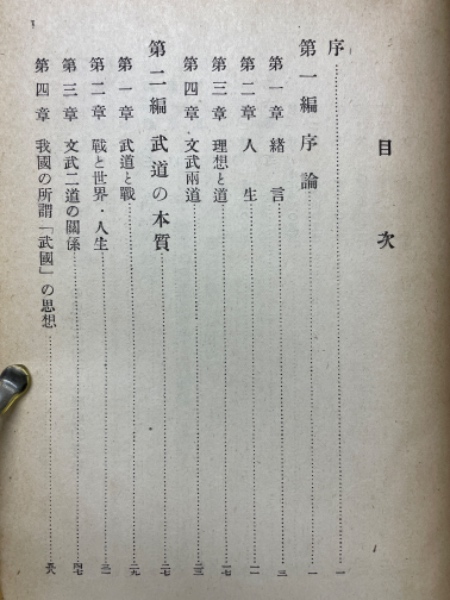 目次
序……一
第一編 序論……一
第一章 緒言……三
第二章 人生……一一
第三章 理想と道……一七
第四章 文武兩道……二三
第二編 武道の本質……二七
第一章 武道と戰……二九
第二章 戰と世界・人生……三一
第三章 文武二道の關係……四七
第四章 我國の所謂「武國」の思想……五八